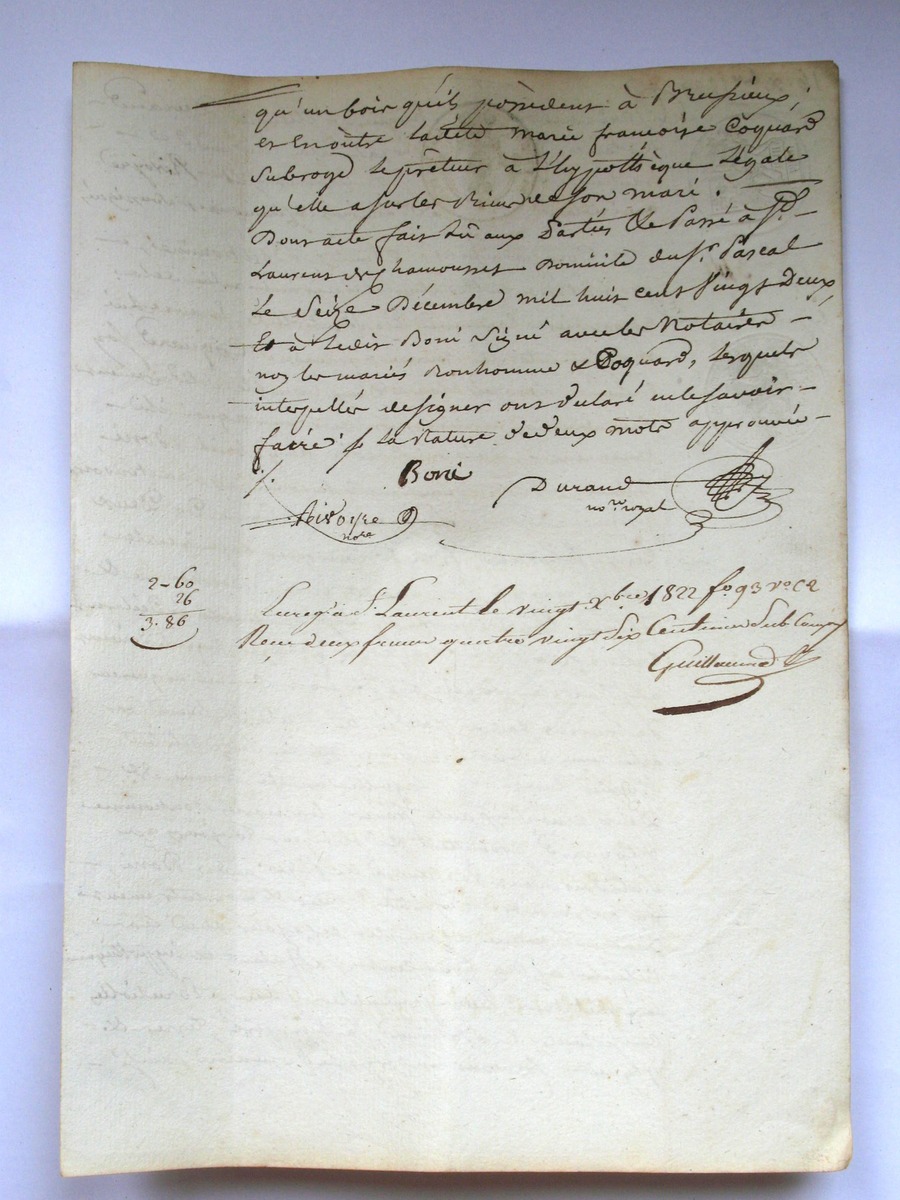 qu'un bois qu'ils possedent à Brussieux,
et en outre laditte marie françoise Coquard
subroge le prêteur à l'hypothèque légale
qu'elle a sur les biens de son mari.
Dont acte fait lu aux Parties & Passé à St
Laurent de chamousset Domicile du Sr. Pascal
Le Seize Décembre mil huit cent vingt Deux
Et à Ledit Boni Signé avec les Notaires
non les mariés Bonhomme & Coquard, lesquels
interpellés de signer ont déclaré ne le savoir
faire. la Rature de deux mots approuvée
Boni
Durand
nore royal
Rivoyre
nore
2-60
26
3.86
Enregé à St. Laurent le vingt Xbre 1822 fo 93 vo C2
Reçu deux francs quatre vingt Six Centimes
Guillaumed